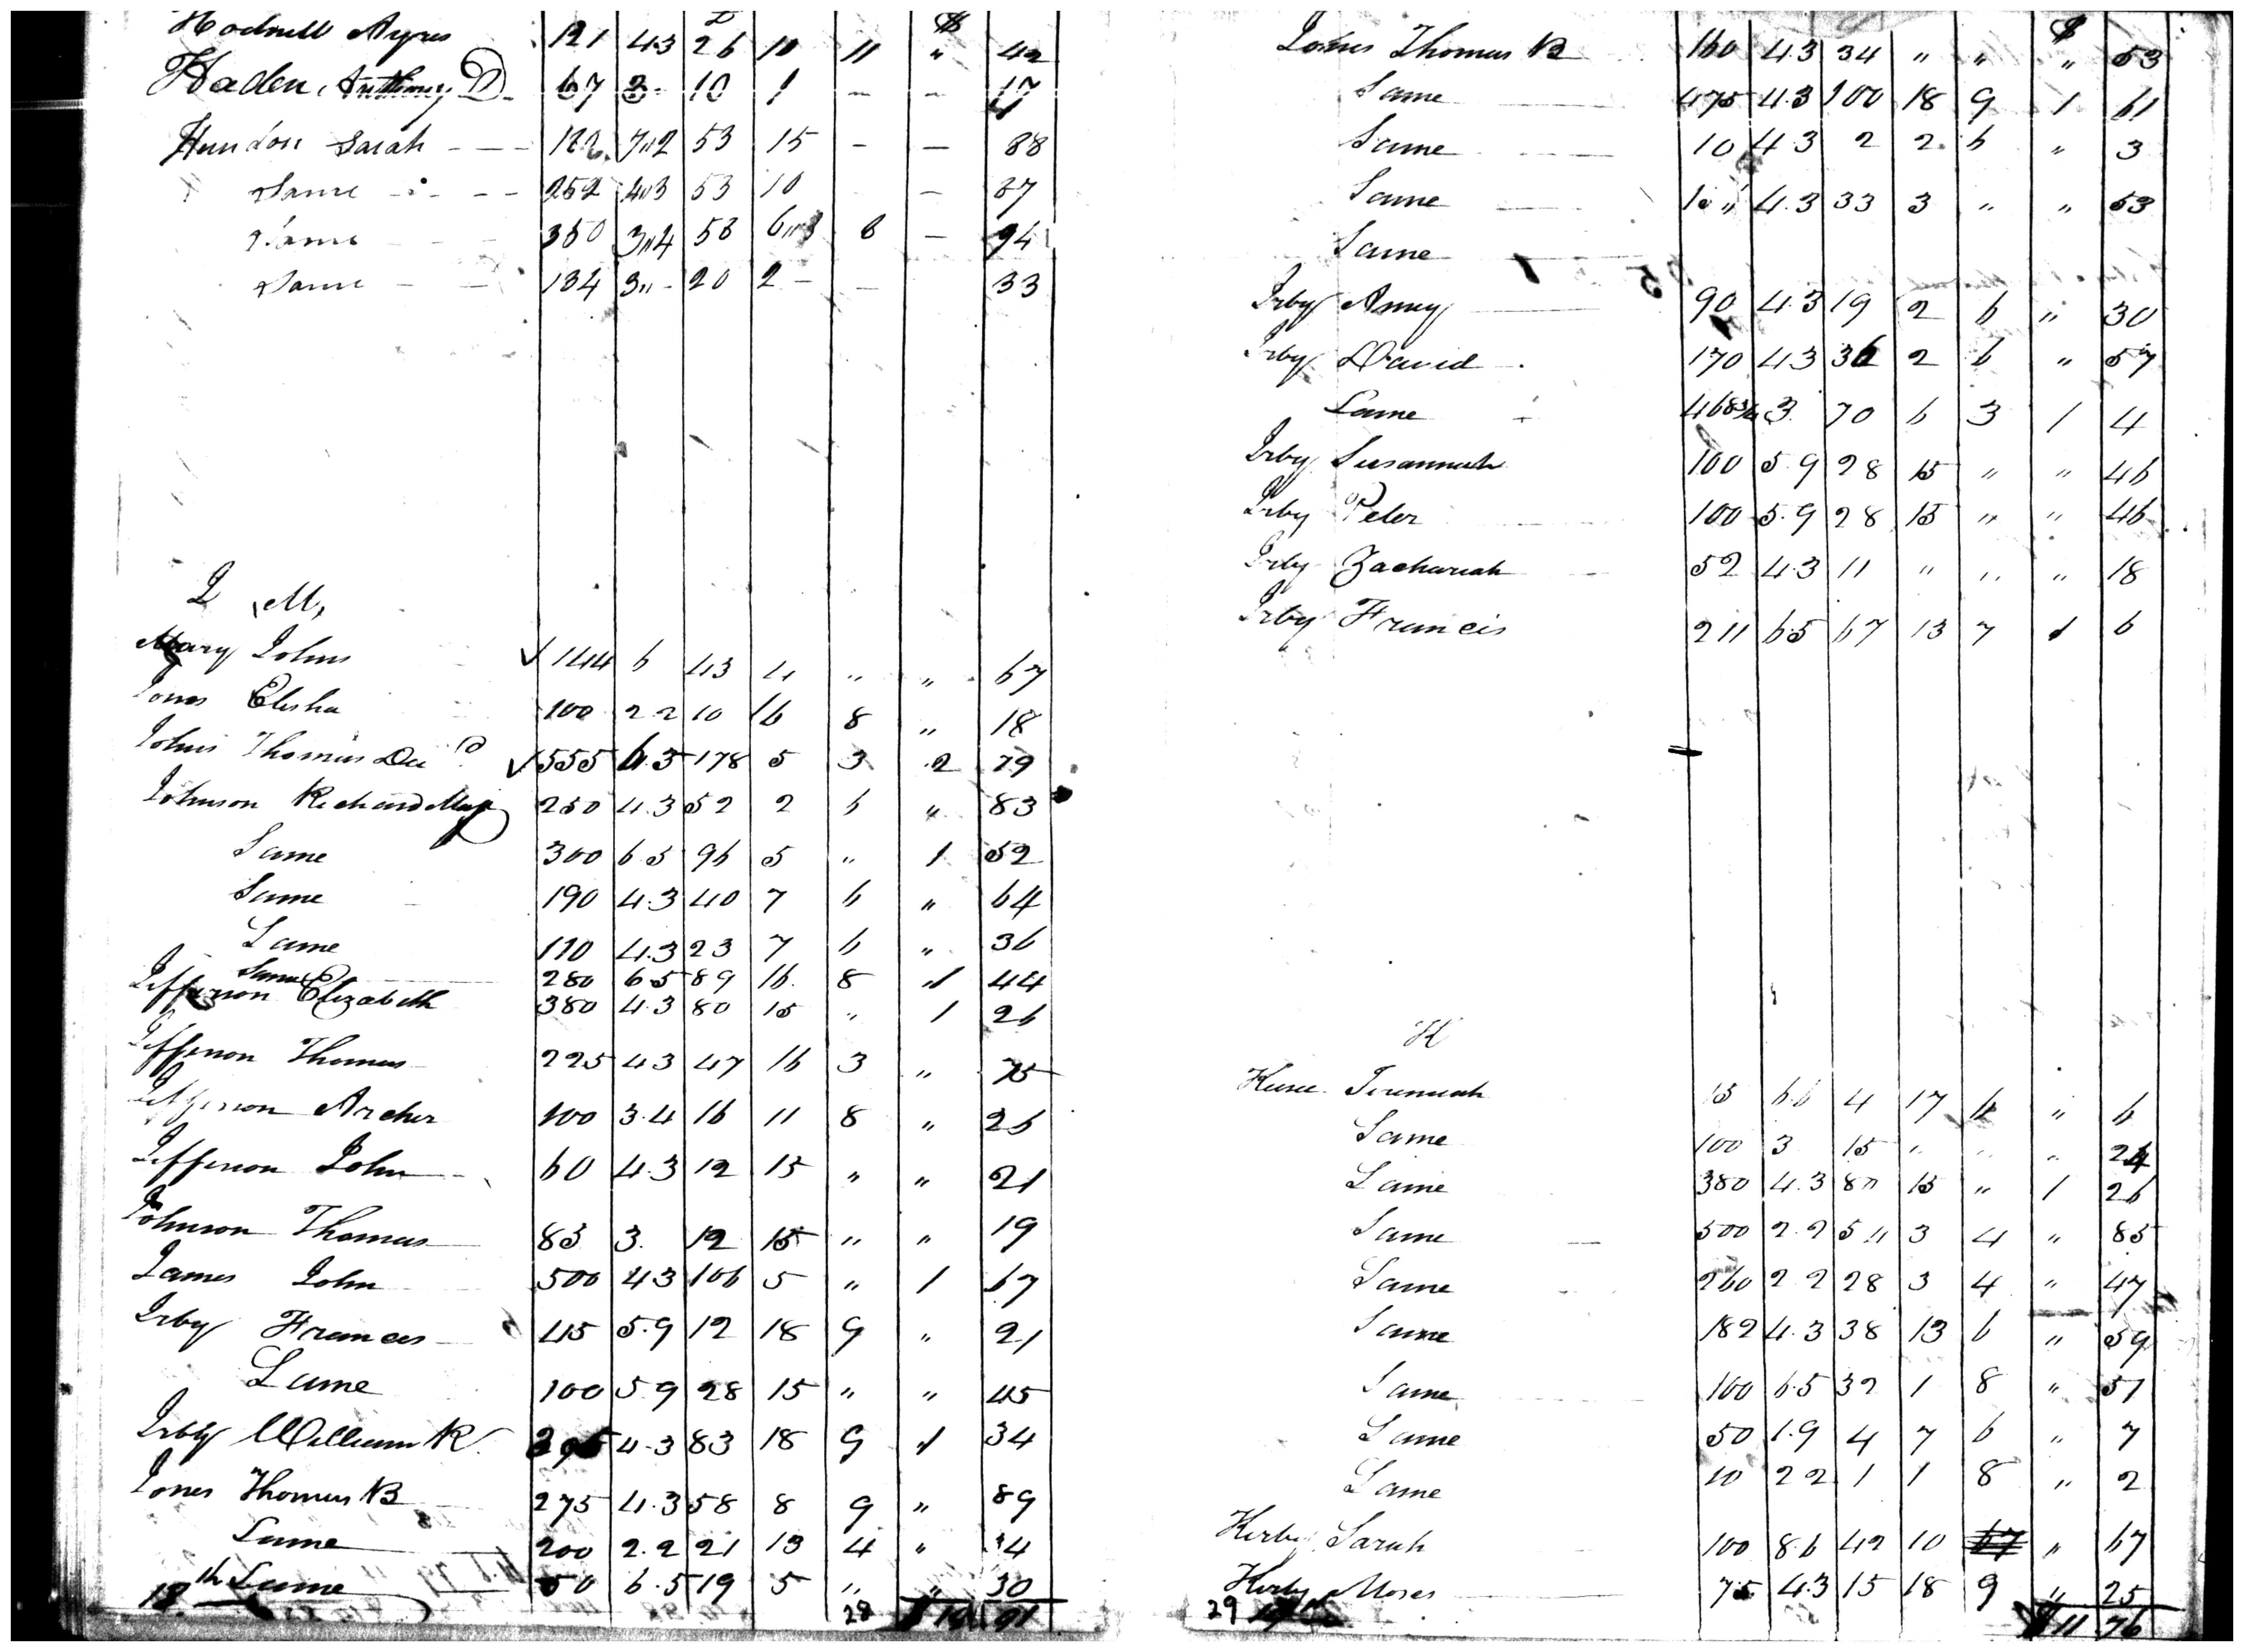 £ $
Hodnett Ayres 121 4.3 26 10 11 " 42
Haden, Anthony D - 67 3 - 10 1 - - 17
Hundon Sarah - - 7"2 53 15 - - 88
" Same - - - 252 4"3 53 10 - 87
Same 350 3"4 58 6"3 8 - 94
Same - - 134 3" - 20 2 - - 33
I M,
Mary Johns √ 144 6 43 4 " " 67
Jones Elisha 100 2 2 10 16 8 " 18
Johns Thomas Decd √ 555 6.5 178 5 3 2 79
Johnson Richard Maj 250 4.3 52 2 6 " 83
Same 300 6 5 96 5 " 1 52
Same 190 4.3 40 7 6 " 64
Same 110 4.3 23 7 6 " 36
Same 280 6 5 89 16 8 1 44
Jefferson Elizabeth 380 4.3 80 15 " 1 26
Jefferson Thomas 225 4 3 47 16 3 " 75
Jefferson Archer 100 3.4 16 11 8 " 26
Jefferson John 60 4.3 12 15 " " 21
Johnson Thomas 85 3. 12 15 " " 19
James John 500 4 3 106 5 " 1 67
Irby Frances 45 5.9 12 18 9 " 21
Same 100 5.9 28 15 " " 45
Irby William R. 395 4.3 83 18 9 1 34
Jones Thomas B 275 4.3 58 8 9 " 89
Same 200 2.2 21 13 4 " 34
Same 60 6.5 19 5 " " 30
18th 28 $ 19 91
$
Jones Thomas B 160 4.3 34 " " " 53
Same 475 4.3 100 18 9 1 61
Same 10 4 3 2 2 6 " 3
Same 4.3 33 3 " " 53
Same
Irby Anney 90 4.3 19 2 6 " 30
Irby David 170 4 3 36 2 6 " 57
Same 468¾ 3. 70 6 3 1 4
Irby Susannah 100 5.9 28 15 " " 46
Irby Peter 100 5.9 28 15 " " 46
Irby Zachariah 52 4.3 11 " " " 18
Irby Francis 211 6.5 67 13 7 1 6
K
Jeremiah 15 6.6 4 17 6 " 6
Same 100 3 15 " " " 24
Same 380 4.3 80 15 " 1 26
Same 500 2.2 54 3 4 " 85
Same 260 2 2 28 3 4 " 47
Same 182 4.3 38 13 6 " 59
Same 100 6.5 32 1 8 " 51
Same 50 1.9 4 7 6 " 7
Same 10 2 2 1 1 8 " 2
Kirby Sarah 100 8.6 42 10 67 " 67
Kirby Moses 75 4.3 15 18 9 " 25
29 $ 11 76